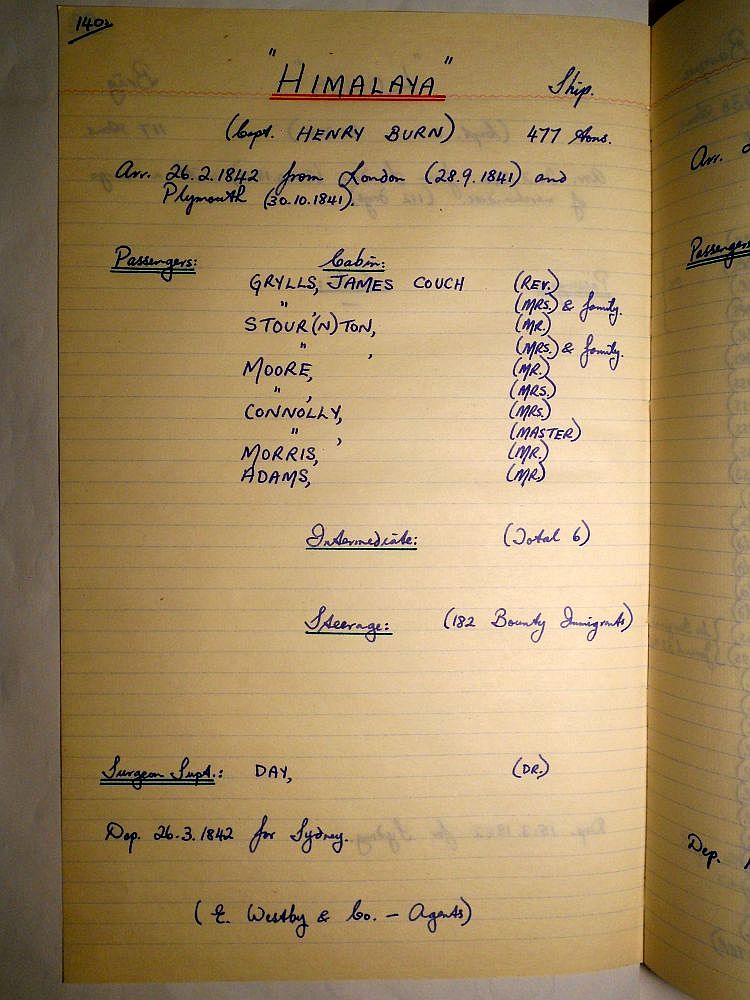 140.
"HIMALAYA" Ship.
(Capt. HENRY BURN) 477 tons.
Arr. 26.2.1842 from London (28.9.1841) and
Plymouth (30.10.1841).
Passengers: Cabin:
GRYLLS, JAMES COUCH (REV.)
" , (MRS.) & family.
STOUR(N)TON, (MR.)
" , (MRS.) & family.
MOORE, (MR.)
" , (MRS.)
CONNOLLY, (MRS.)
" , (MASTER)
MORRIS, (MR.)
ADAMS, (MR.)
Intermediate: (Total 6)
Steerage: (182 Bounty Immigrants)
Surgeon Supt.: DAY, (DR.)
Dep. 26.3.1842 for Sydney.
(E. Westby & Co. - Agents)
Arr.
Passengers
Dep.